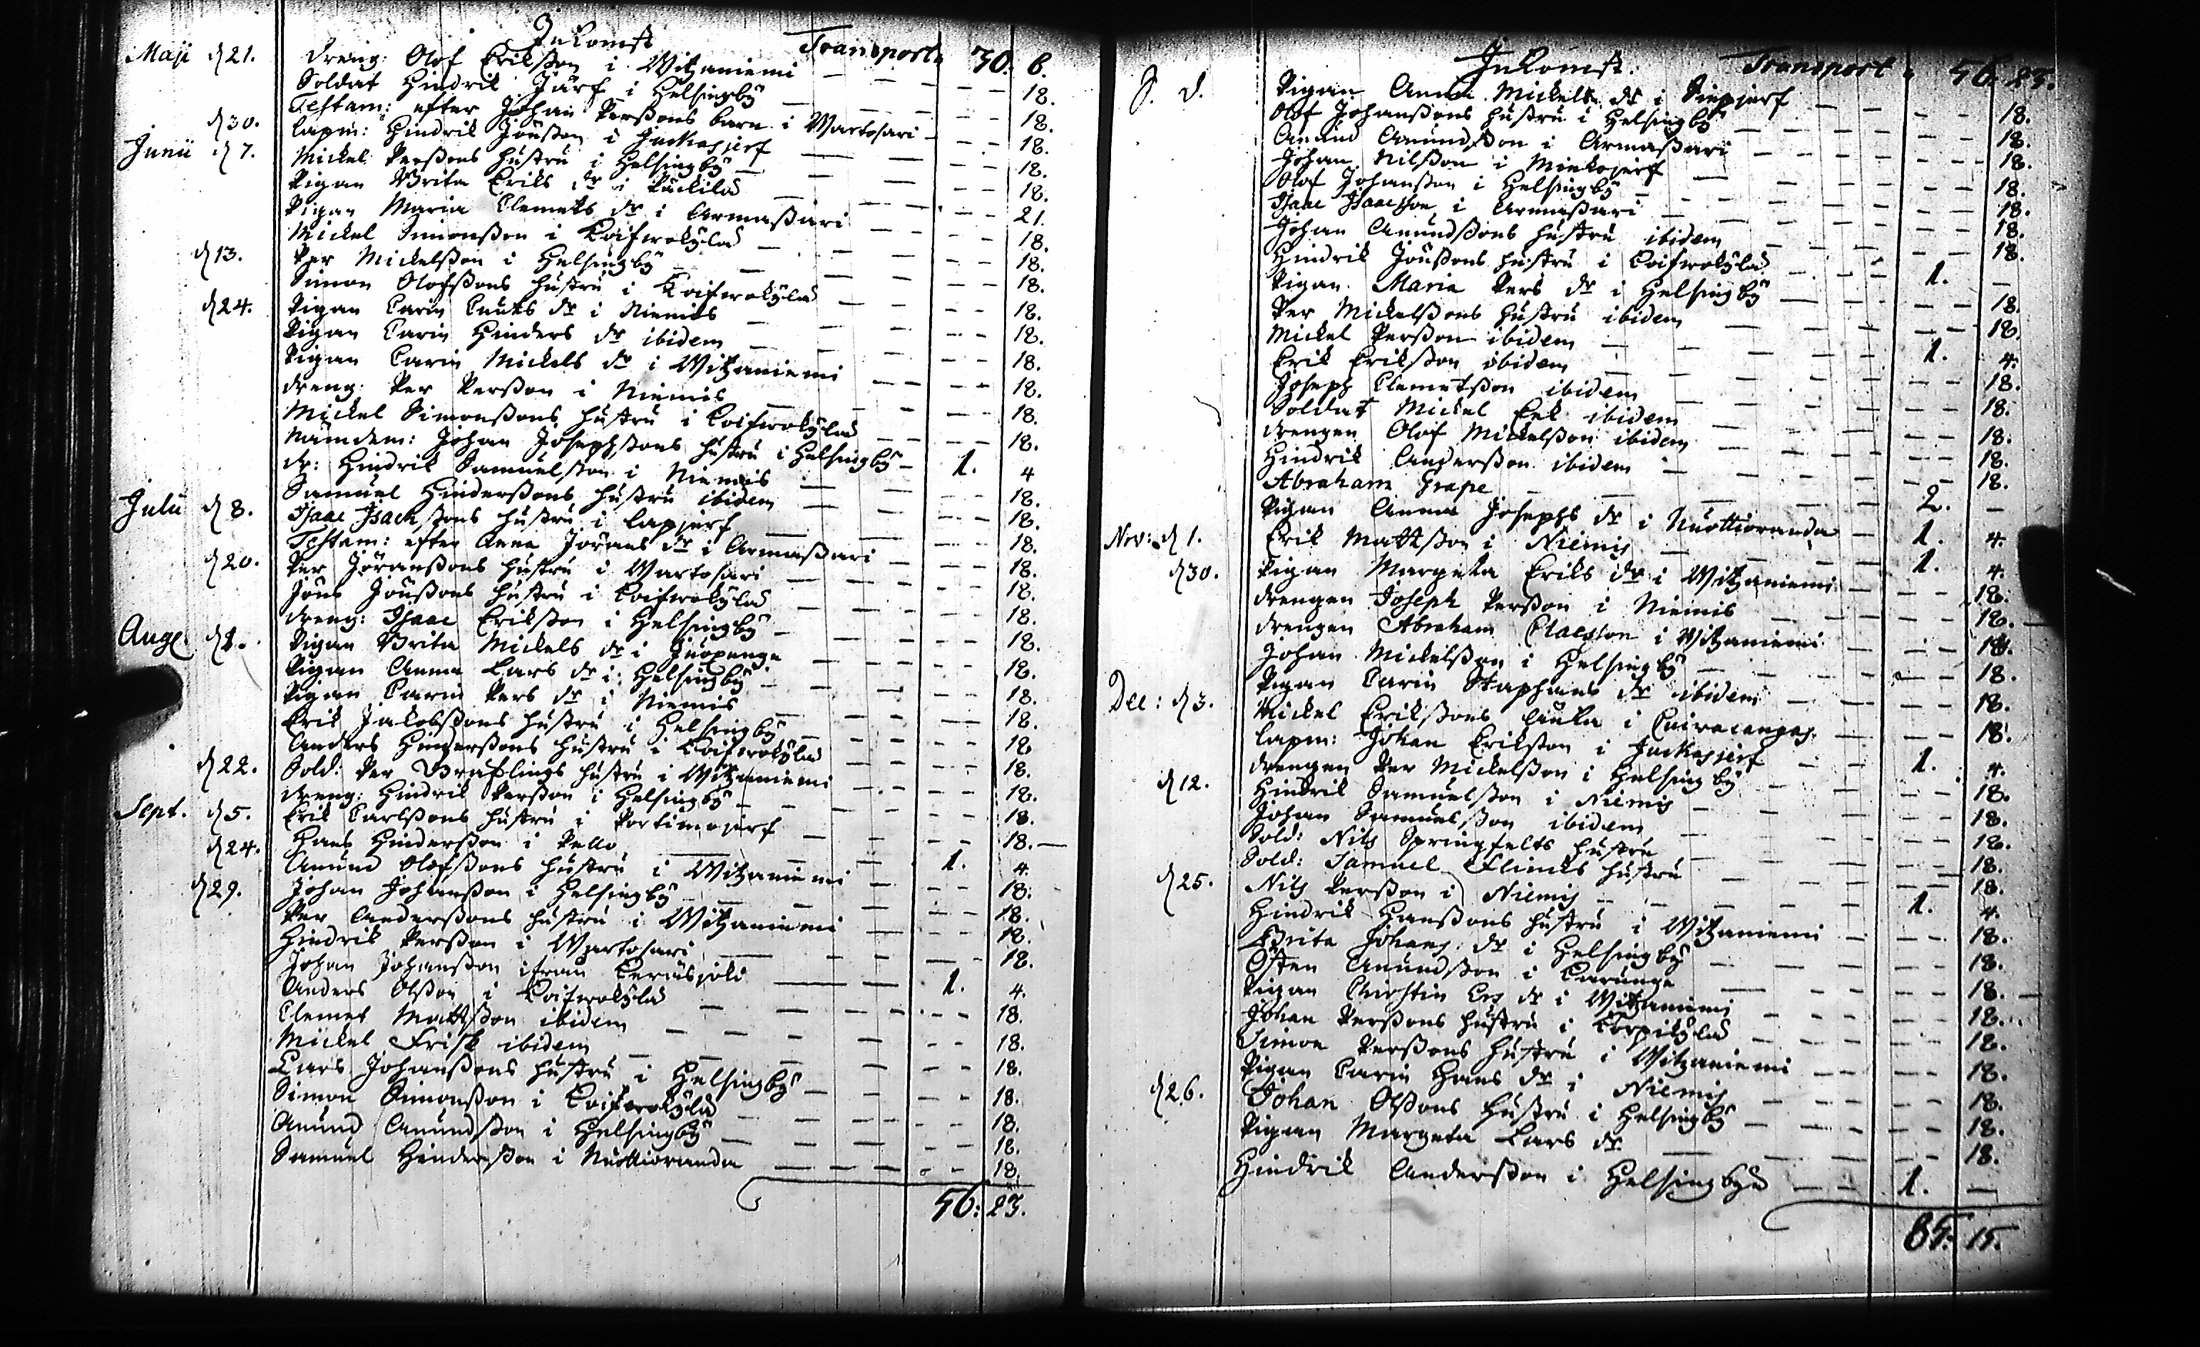 Inkomst Transport. 30. 6.
Maji d 21. Dreng: Olof Erikßon i Witzaniemi — 18.
Soldat Hindrik Järf i Helsingbÿ — 18.
Testam: efter Johan Perßons barn i Wartosari — 18.
d 30. Lapm: Hindrik Jönßon i Juckasjerf — 18.
Junii d 7. Mickel Perßons hustru i Helsingbÿ — 18.
Pigan Brita Eriks dr i — 21.
Pigan Maria Clemets dr i Armaßari — 18.
Mickel Simonßon i Koifwrokÿlä — 18.
d 13. Per Mickelßon i Helsingbÿ — 18.
Simon Olofßons hustru i Koifwrokÿlä — 18.
d 24. Pigan Carin Cnuts dr i Niemis — 18.
Pigan Carin Hinders dr ibidem — 18.
Pigan Carin Mickels dr i Witzaniemi — 18.
Dreng Per Perßon i Niemis — 18.
Mickel Simonßons hustru i Koifwrokÿlä — 18.
Nämdem: Johan Josephßons hustru i Helsingbÿ — 1. 4
Dr: Hindrik Samuelßon i Niemis — 18.
Samuel Hinderßons hustru ibidem — 18.
Julii d 8. Isaac Isacksons hustru i Lapjerf — 18.
Testam: efter Anna Jörans dr i Armaßari — 18.
d 20. Per Jöranßons hustru i Wartosari — 18.
Jöns Jönßons hustru i Koifwrokÿlä — 18.
Dreng: Isaac Erikßon i Helsingbÿ — 18.
Aug. d 1. Pigan Brita Mickels dr i Juopenga — 18.
Pigan Anna Lars dr i Helsingbÿ — 18.
Pigan Carin Pers dr i Niemis — 18.
Erik Jakobßons hustru i Helsingbÿ — 18
Anders Hinderßons hustru i Koifwrokÿlä — 18.
d 22. Sold: Per hustru i Witzaniemi — 18.
Dreng: Hindrik Perßon i Helsingbÿ — 18.
Sept. d 5. Erik Carlßons hustru i Portimojerf — 18.
d 24. Hans Hinderßon i Pello — 1. 4.
Amund Olofßons hustru i Witzaniemi — 18.
d 29. Johan Johanßon i Helsingbÿ — 18.
Per Anderßons hustru i Witzaniemi — 18.
Hindrik Perßon i Wartosari — 18.
Johan Johanßon ifrån — 1. 4.
Anders Olßon i Koifwrokÿlä — 18.
Clemet Mattßon ibidem — 18.
Mickel Frisk ibidem — 18.
Lars Johanßons hustru i Helsingbÿ — 18.
Simon Simonßon i Koifwrokÿlä — 18.
Amund Amundßon i Helsingbÿ — 18.
Samuel Hinderßon i Nuottioranda — 18.
56: 23.
Inkomst: Transport. 56. 23.
S. D. Pigan Anna Mickels dr i Siepijerf — 18.
Olof Johanßons hustru i Helsingbÿ — 18.
Amund Amundßon i Armaßari — 18.
Johan Nilßon i Miekojerf — 18.
Olof Johanßon i Helsingbÿ — 18.
Isaac Isaacßon i Armaßari — 18.
Johan Amundßons hustru ibidem — 18.
Hindrik Jönßons hustru i Koifwrokÿlä — 1. —
Pigan Maria Pers dr i Helsingbÿ — 18.
Per Mickelßons hustru ibidem — 18.
Mickel Perßon ibidem — 1. 4.
Erik Erikßon ibidem — 18.
Joseph Clemetßon ibidem — 18.
Soldat Mickel Eek ibidem — 18.
Drengen Olof Mickelßon ibidem — 18.
Hindrik Anderßon ibidem — 18.
Abraham Grape — 2. —
Pigan Anna Josephs dr i Nuottioranda — 1. 4.
Nov: d 1. Erik Mattßon i Niemis — 1. 4.
d 30. Pigan Margeta Eriks dr i Witzaniemi — 18.
Drengen Joseph Perßon i Niemis — 18.
Drengen Abraham Claesson i Witzaniemi — 18.
Johan Mickelßon i Helsingbÿ — 18.
Pigan Carin Staphans dr ibidem — 18.
Dec: d 3. Mickel Erikßons i — 18.
Lapm: Johan Erikßon i Juckasjerf — 1. 4.
Drengen Per Mickelßon i Helsingbÿ — 18.
d 12. Hindrik Samuelßon i Niemis — 18.
Johan Samuelßon ibidem — 18.
Sold: Nils Springfelts hustru — 18.
Sold: Samuel Flincks hustru — 18.
d 25. Nils Perßon i Niemis — 1. 4.
Hindrik Hanßons hustru i Witzaniemi — 18.
Brita Johans dr i Helsingbÿ — 18.
Östen Amundßon i Carunge — 18.
Pigan Chirstin Ers dr i Witzaniemi — 18.
Johan Perßons hustru i Korpikÿlä — 18.
Simon Perßons hustru i Witzaniemi — 18.
Pigan Carin Hans dr i Niemis — 18.
d 26. Johan Olßons hustru i Helsingbÿ — 18.
Pigan Margeta Lars dr — 18.
Hindrik Anderßon i Helsingbÿn — 1. —
85: 15.